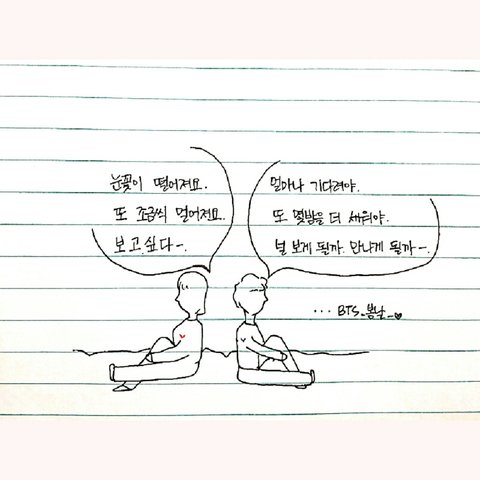 눈꽃이 떨어져요.
또 조금씩 멀어져요.
보고싶다~.
얼마나 기다려야.
또 몇밤을 더 새워야.
널 보게 될까. 만나게 될까~.
... BTS_봄날_♥